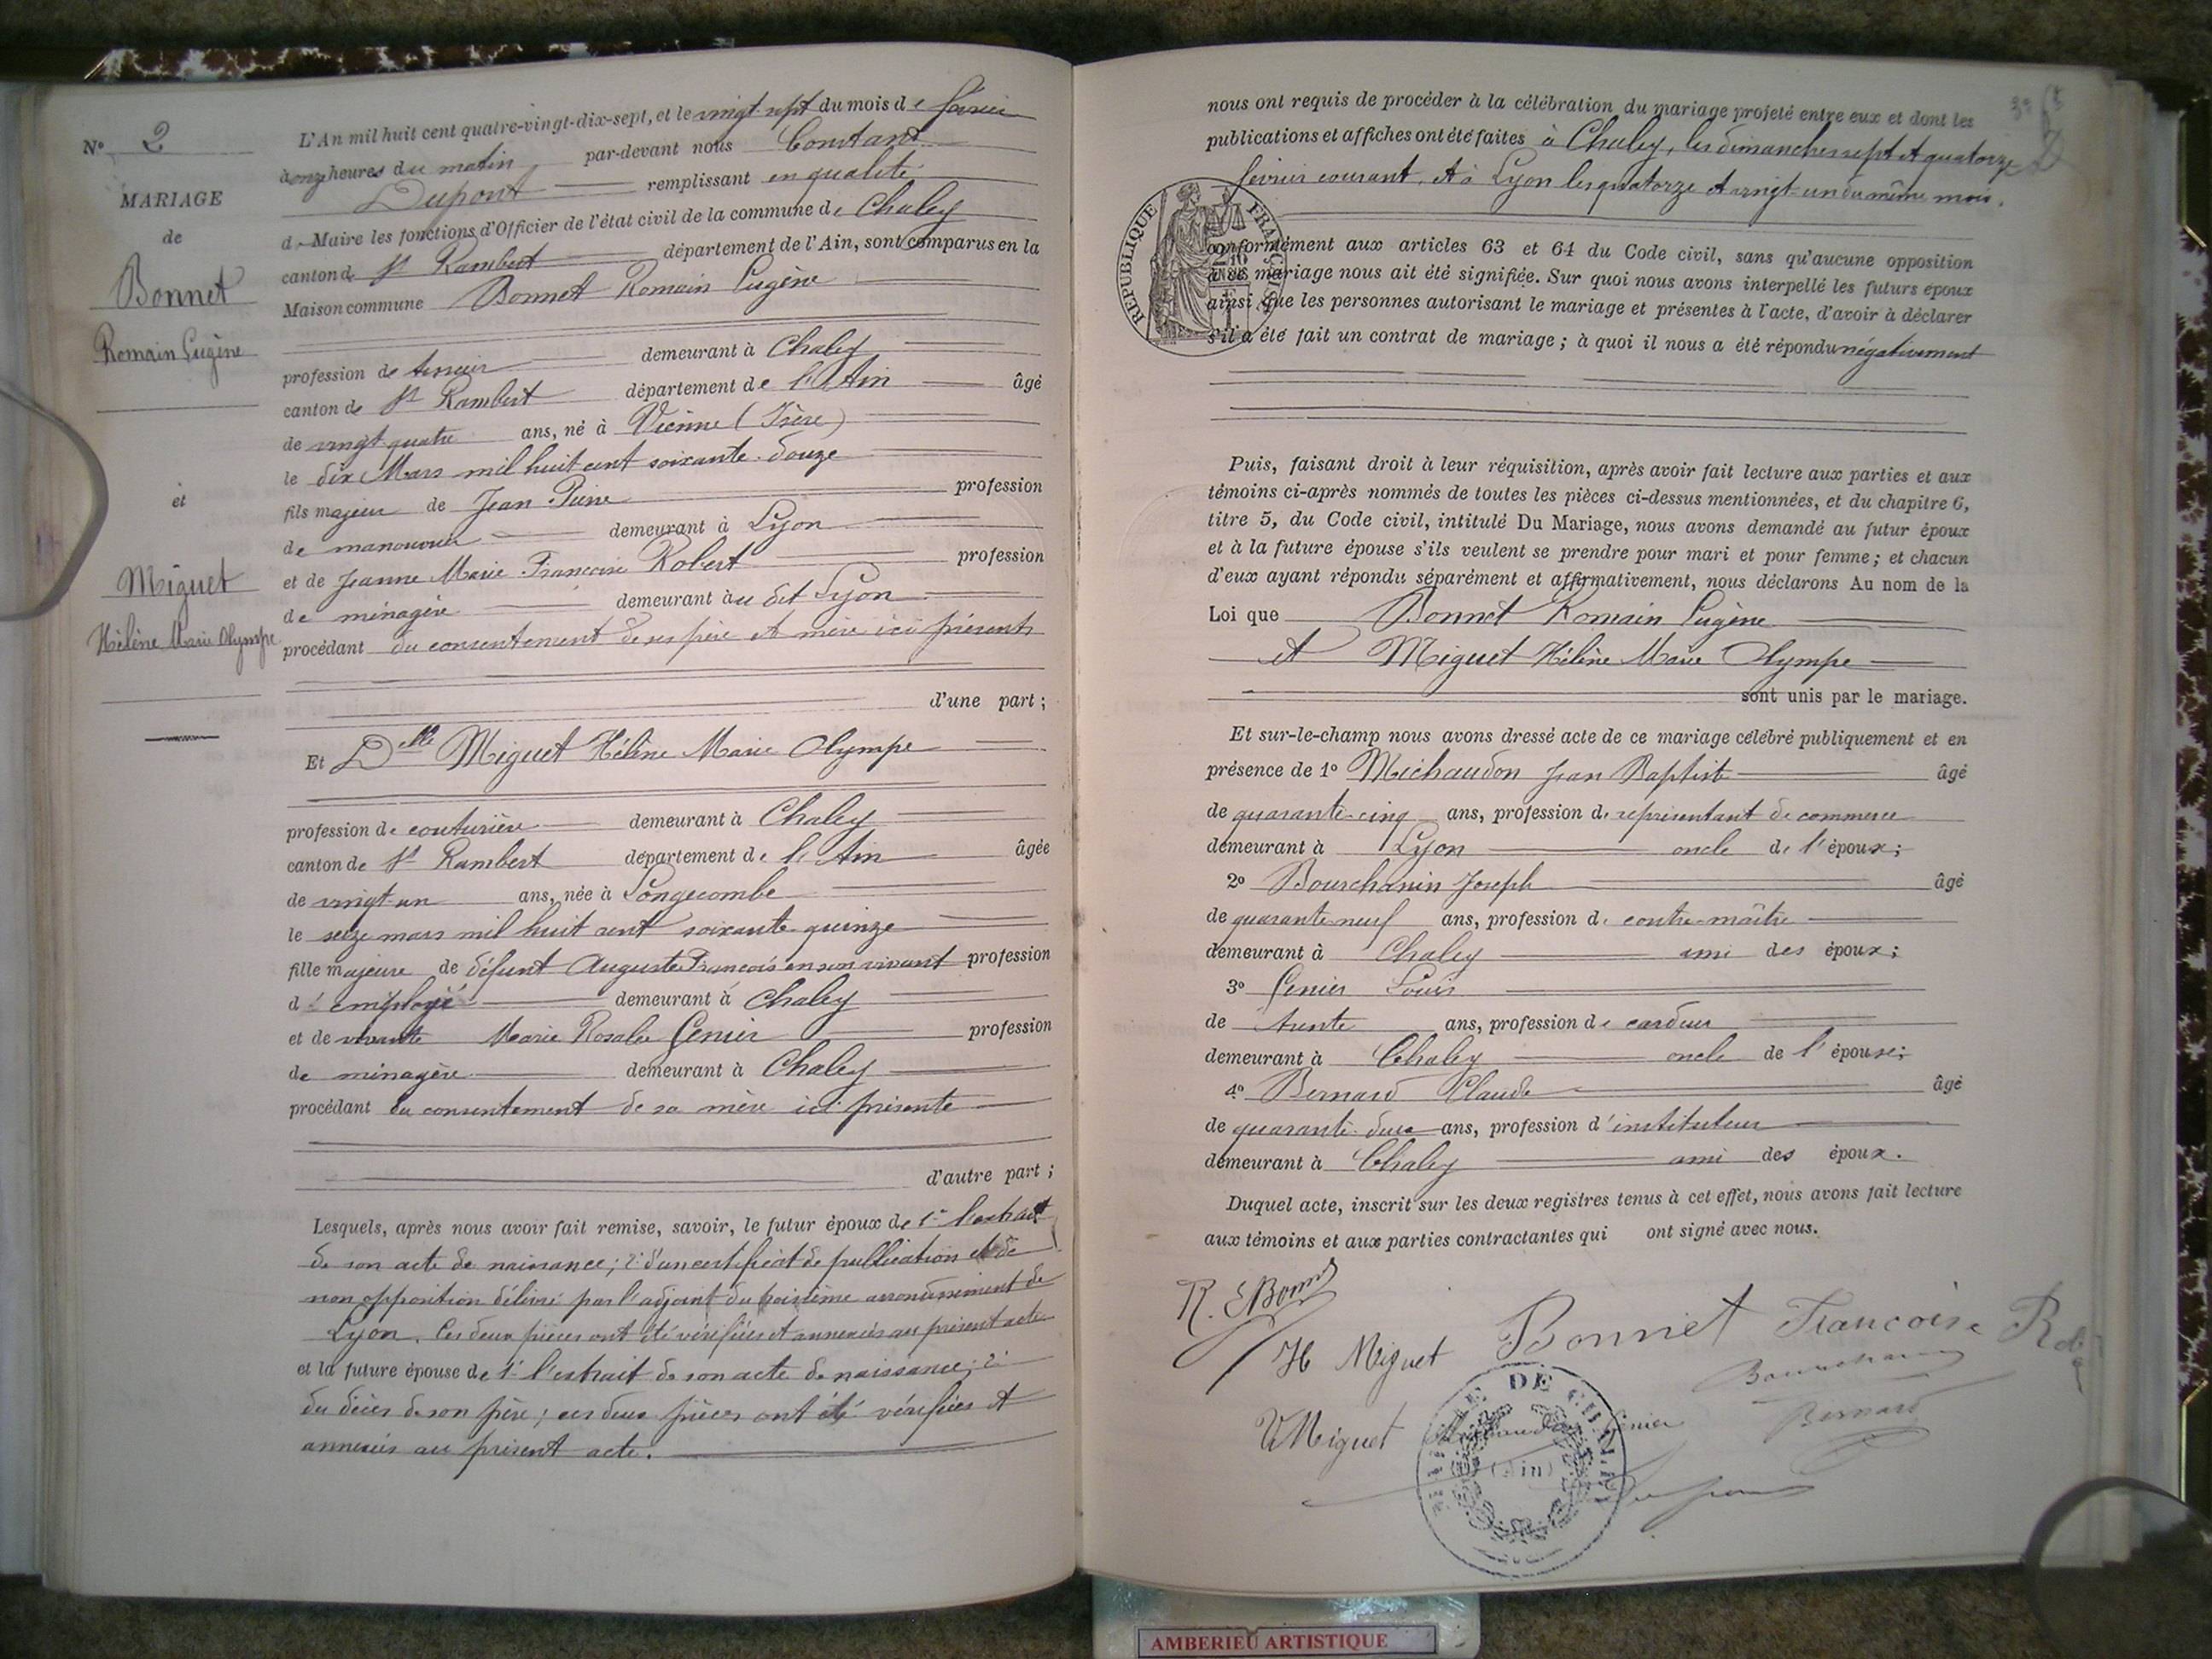 N° 2
MARIAGE
de
Bonnet
Romain Eugène
et
Miguet
Hélène Marie Olympe
L'An mil huit cent quatre-vingt-dix-sept, et le vingt-sept du mois de février
à onze heures du matin par-devant nous Constant
Dupont remplissant en qualité
de Maire les fonctions d'Officier de l'état civil de la commune de Chaley
canton de St Rambert département de l'Ain, sont comparus en la
Maison commune Bonnet Romain Eugène
profession de demeurant à Chaley
canton de St Rambert département de l'Ain âgé
de vingt quatre ans, né à Vienne (Isère)
le dix Mars mil huit cent soixante-douze
fils majeur de Jean Pierre profession
de manouvrier demeurant à Lyon
et de Jeanne Marie Francoise Robert profession
de ménagère demeurant àu dit Lyon
procédant du consentement de ses père et mère ici présents
d'une part ;
Et Delle Miguet Hélène Marie Olympe
profession de couturière demeurant à Chaley
canton de St Rambert département de l'Ain âgée
de vingt-un ans, née à Longecombe
le seize mars mil huit cent soixante-quinze
fille majeure de défunt Auguste François en son vivant profession
d'employé demeurant à Chaley
et de vivante Marie Rosalie Genier profession
de ménagère demeurant à Chaley
procédant du consentement de sa mère ici présente
d'autre part ;
Lesquels, après nous avoir fait remise, savoir, le futur époux de 1° l'extrait
de son acte de naissance ; 2° d'un certificat de publication et de
non opposition délivré par l'adjoint du troisième arrondissement de
Lyon. Ces deux pièces ont été vérifiées et annexées au présent acte
et la future épouse de 1° l'extrait de son acte de naissance ; 2°
du décès de son père ; ces deux pièces ont été vérifiées et
annexées au présent acte.
nous ont requis de procéder à la célébration du mariage projeté entre eux et dont les
publications et affiches ont été faites à Chaley, les dimanches sept et quatorze
février courant, et à Lyon les quatorze et vingt-un du même mois.
RÉPUBLIQUE FRANÇAISE
conformément aux articles 63 et 64 du Code civil, sans qu'aucune opposition
à ce mariage nous ait été signifiée. Sur quoi nous avons interpellé les futurs époux
ainsi que les personnes autorisant le mariage et présentes à l'acte, d'avoir à déclarer
s'il a été fait un contrat de mariage ; à quoi il nous a été répondu négativement
Puis, faisant droit à leur réquisition, après avoir fait lecture aux parties et aux
témoins ci-après nommés de toutes les pièces ci-dessus mentionnées, et du chapitre 6,
titre 5, du Code civil, intitulé Du Mariage, nous avons demandé au futur époux
et à la future épouse s'ils veulent se prendre pour mari et pour femme ; et chacun
d'eux ayant répondu séparément et affirmativement, nous déclarons Au nom de la
Loi que Bonnet Romain Eugène
et Miguet Hélène Marie Olympe
sont unis par le mariage.
Et sur-le-champ nous avons dressé acte de ce mariage célébré publiquement et en
présence de 1° Michaudon Jean Baptiste âgé
de quarante-cinq ans, profession de représentant de commerce
demeurant à Lyon oncle de l'époux ;
2° Bourchanin Joseph âgé
de quarante-neuf ans, profession de contre-maître
demeurant à Chaley ami des époux ;
3° Genier Louis
de trente ans, profession de cardeur
demeurant à Chaley oncle de l'épouse ;
4° Bernard Claude âgé
de quarante-deux ans, profession d'instituteur
demeurant à Chaley ami des époux.
Duquel acte, inscrit sur les deux registres tenus à cet effet, nous avons fait lecture
aux témoins et aux parties contractantes qui ont signé avec nous.
R. E Bonnet
H Miguet Bonnet Francoise
Bourchanin
Miguet Genier Bernard
(Ain)
Dupont
AMBERIEU ARTISTIQUE